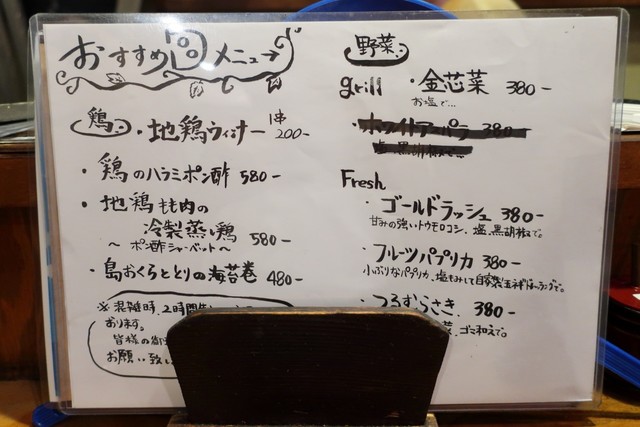 おすすめメニュー
鶏
・地鶏ウィンナー 1串 200-
・鶏のハラミポン酢 580-
・地鶏もも肉の
冷製蒸し鶏
～ポン酢シャーベット～ 580-
・島おくらととりの海苔巻 480-
※混雑時、2時間
おります。
皆様の御
お願い致し
野菜
grill
・金芯菜 380-
お塩で…
ホワイトアスパラ 380-
塩、黒胡椒で…
Fresh
・ゴールドラッシュ 380-
甘みの強いトウモロコシ、塩、黒胡椒で。
・フルーツパプリカ 380-
小ぶりなパプリカ、塩もみして自家製玉ネギドレッシングで。
・つるむらさき 380-
菜、ゴマ和えで。